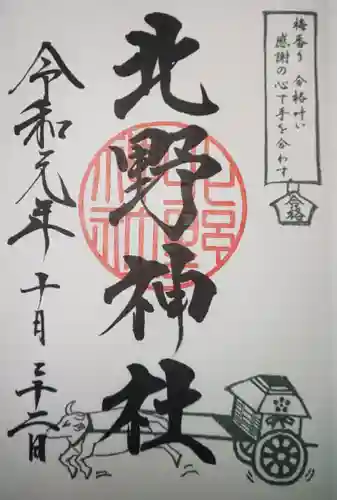 梅香り 合格叶い
感謝の心で手を合わす
合格
北野神社
令和元年
十月
二十二日